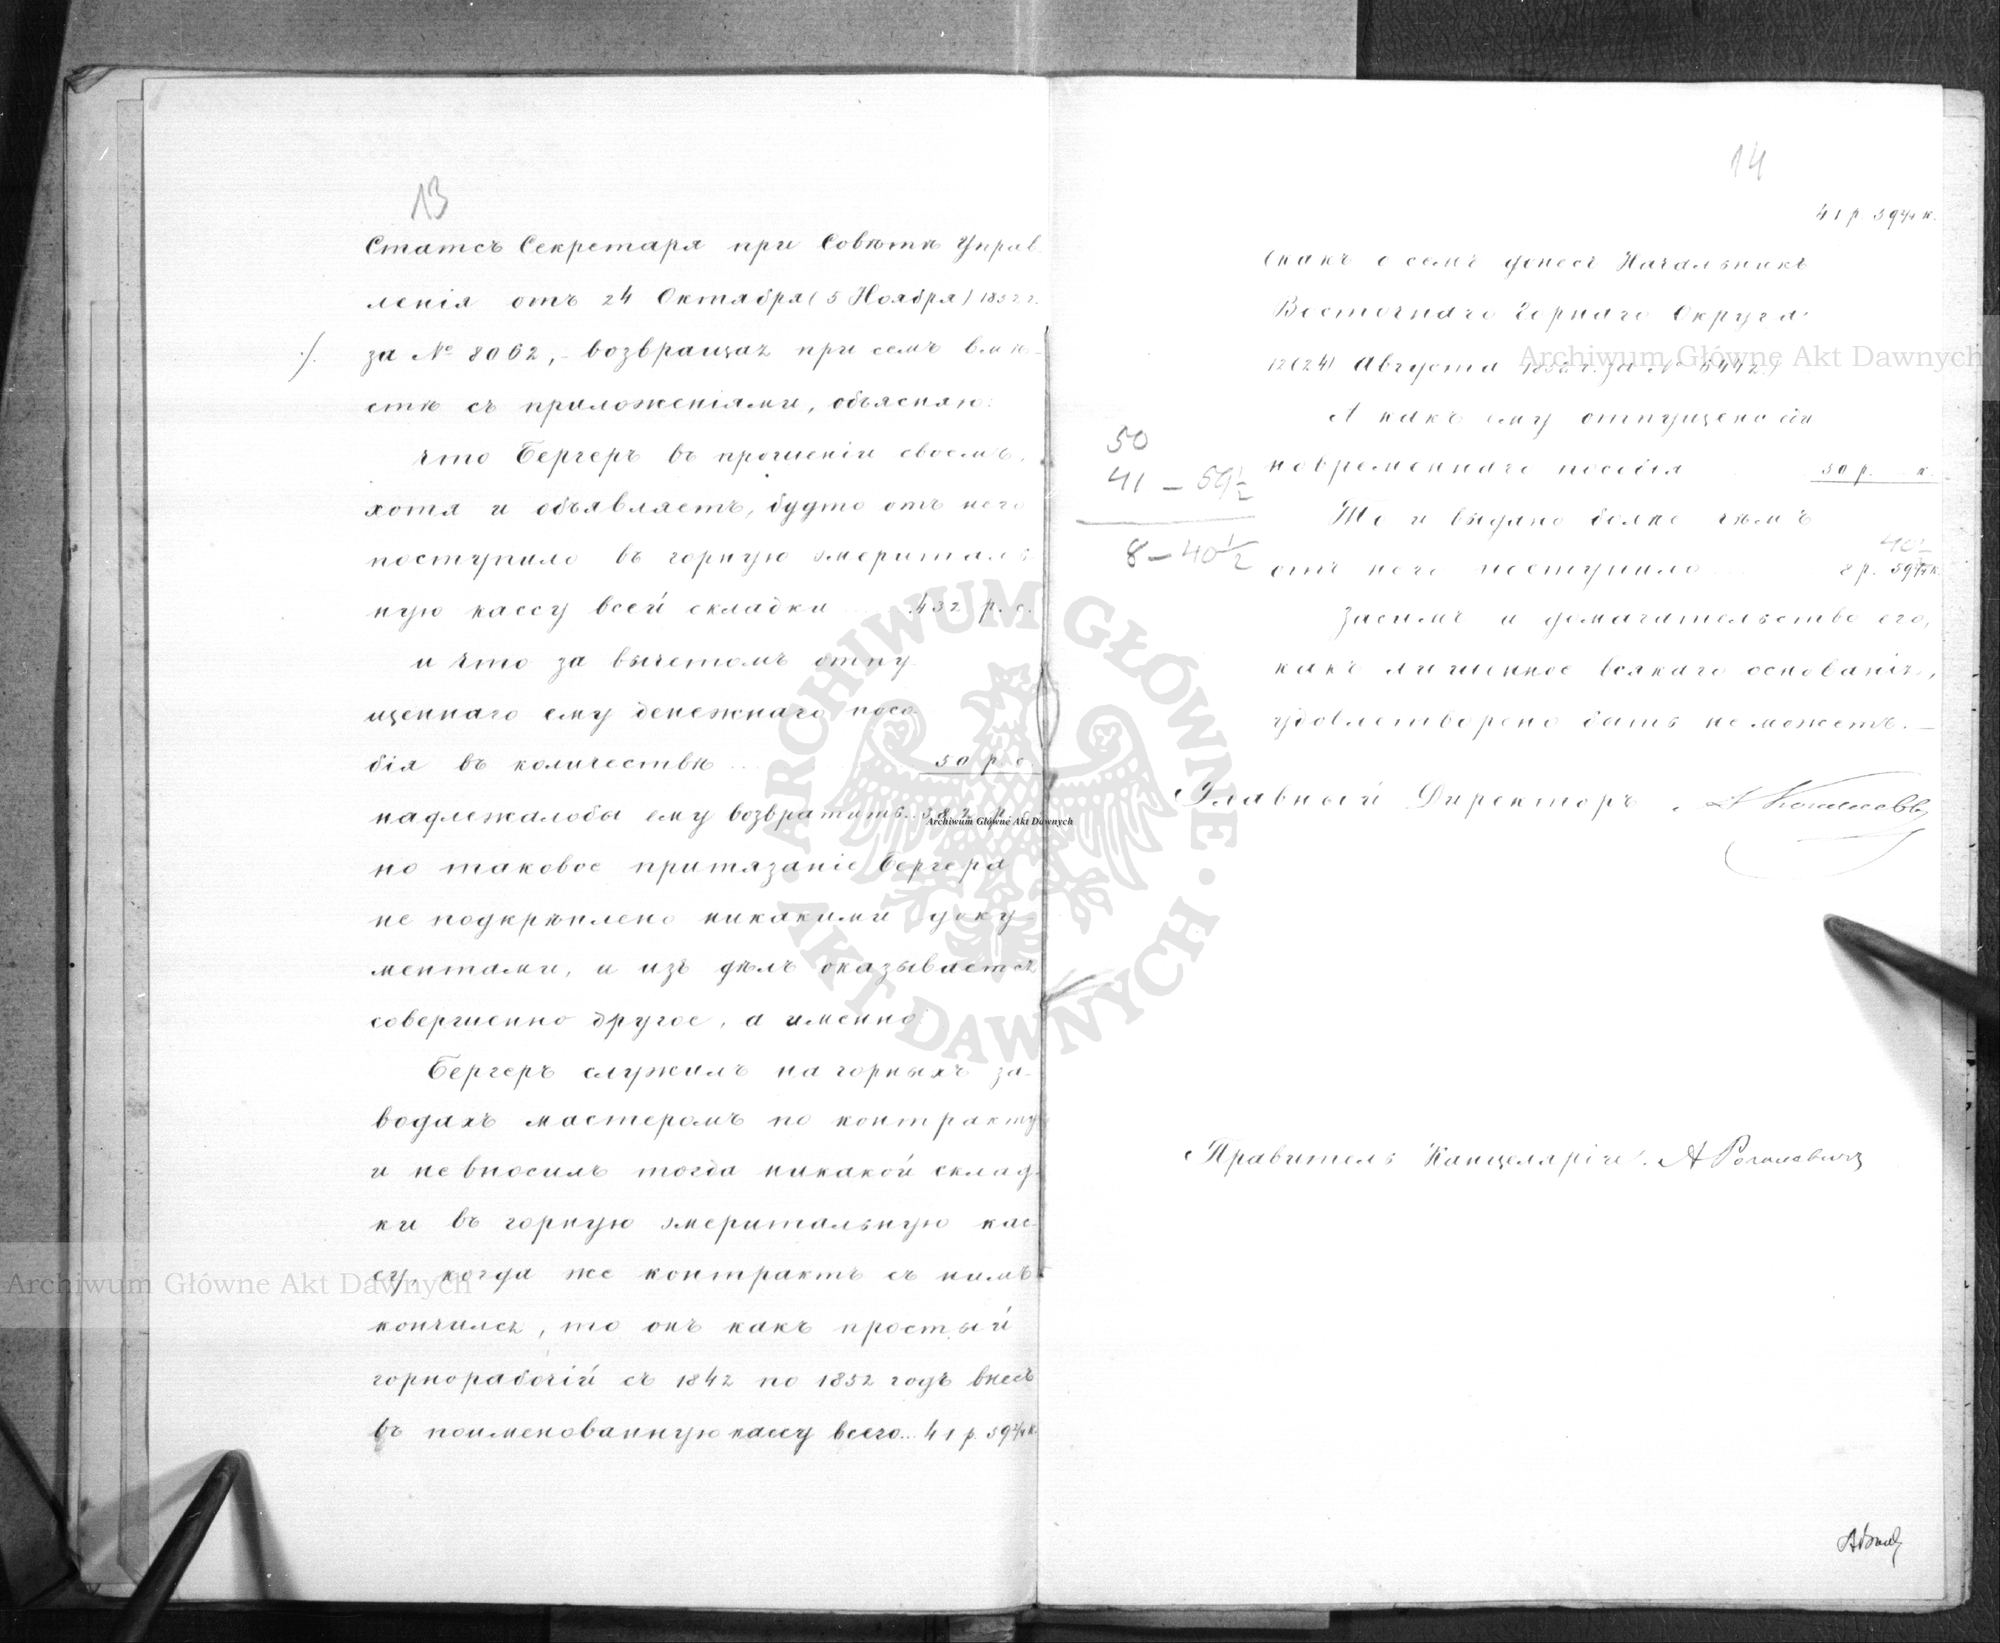 13
Статсъ Секретаря при Совѣтѣ Управ-
ленія отъ 24 Октября (5 Ноября) 1852 г.
за № 8062, - возвращая при семъ вмѣ-
стѣ съ приложеніями, объясняю:
что Бергеръ въ прошеніи своемъ,
хотя и объявляетъ, будто отъ него
поступило въ горную эмериталь-
ную кассу всей складки ... 432 р. с.
и что за вычетомъ отпу-
щеннаго ему денежнаго посо-
бія въ количествѣ ... 50 р. с.
надлежалобы ему возвратить.. 382 р. с.
но таковое притязаніе Бергера
не подкрѣплено никакими доку-
ментами, и изъ дѣлъ оказывается
совершенно другое, а именно:
Бергеръ служилъ на горныхъ за-
водахъ мастеромъ по контракту
и не вносилъ тогда никакой склад-
ки въ горную эмеритальную кас-
су, когда же контрактъ съ нимъ
кончился, то онъ какъ простый
горнорабочій съ 1842 по 1852 годъ внесъ
въ поименованную кассу всего... 41 р. 59 1/2 к.
14
41 р. 59 1/2 к.
(какъ о семъ донесъ Начальникъ
Восточнаго Горнаго Округа
12(24) Августа за № 5442.)
А какъ ему отпущено еди
новременнаго пособія 50 р. к.
То и выдано болѣе чѣмъ
отъ него поступило 8 р. 40 1/2
Засимъ и домагательство его,
какъ лишенное всякаго основанія,
удовлетворено быть не можетъ. —
50
41 - 59 1/2
8 - 40 1/2
Главный Директоръ
Правитель Канцеляріи
Archiwum Główne Akt Dawnych
Archiwum Główne Akt Dawnych
Archiwum Główne Akt Dawnych
ARCHIWUM GŁÓWNE · AKT DAWNYCH ·